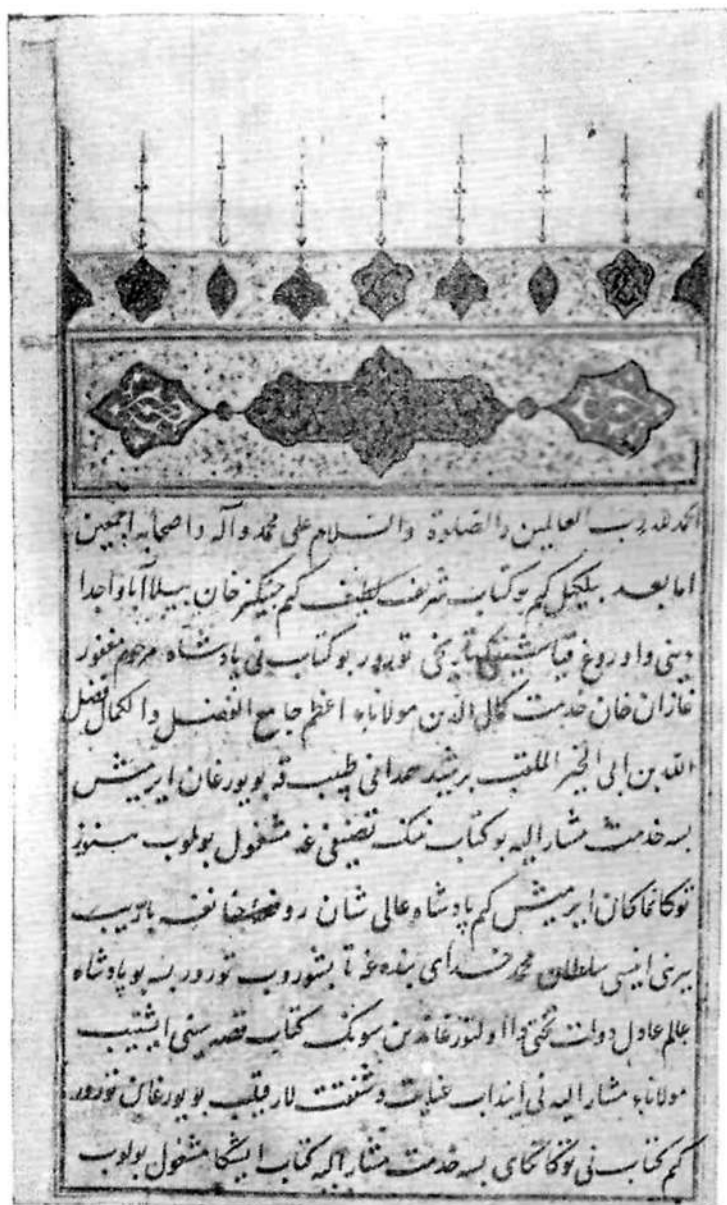 الحمد لله رب العالمین والصلوة والسلام علی محمد وآله واصحابه اجمعین
اما بعد بیلکیل کم بو کتاب شریف لطیف کم جینکیز خان بیلا آبا واجدا
دینی و اوروغ قیاشی نینک تاریخی تورور بو کتاب نی پادشاه مرحوم مغفور
غازان خان خدمت کمال الدین مولاناء اعظم جامع الفضل والکمال فضل
الله بن ابی الخیر الملقب برشید همدانی طبیب قه بویورغان ایرمیش
بسه خدمت مشار الیه بو کتاب ننک تصنیفی غه مشغول بولوب هنوز
توکانماکان ایرمیش کم پادشاه عالی شان روضه جنانغه باریب
یرنی اینیسی سلطان محمد خدای بنده غه تابشوروب تورور بسه بو پادشاه
عالم عادل دولت تختی دا اولتورغاندین سونک کتاب قصه سینی ایشیتیب
مولاناء مشار الیه نی اینداب عنایت و شفقت لار قیلیب بویورغان تورور
کم کتاب نی توکاتکای بسه خدمت مشار الیه کتاب ایشیکا مشغول بولوب